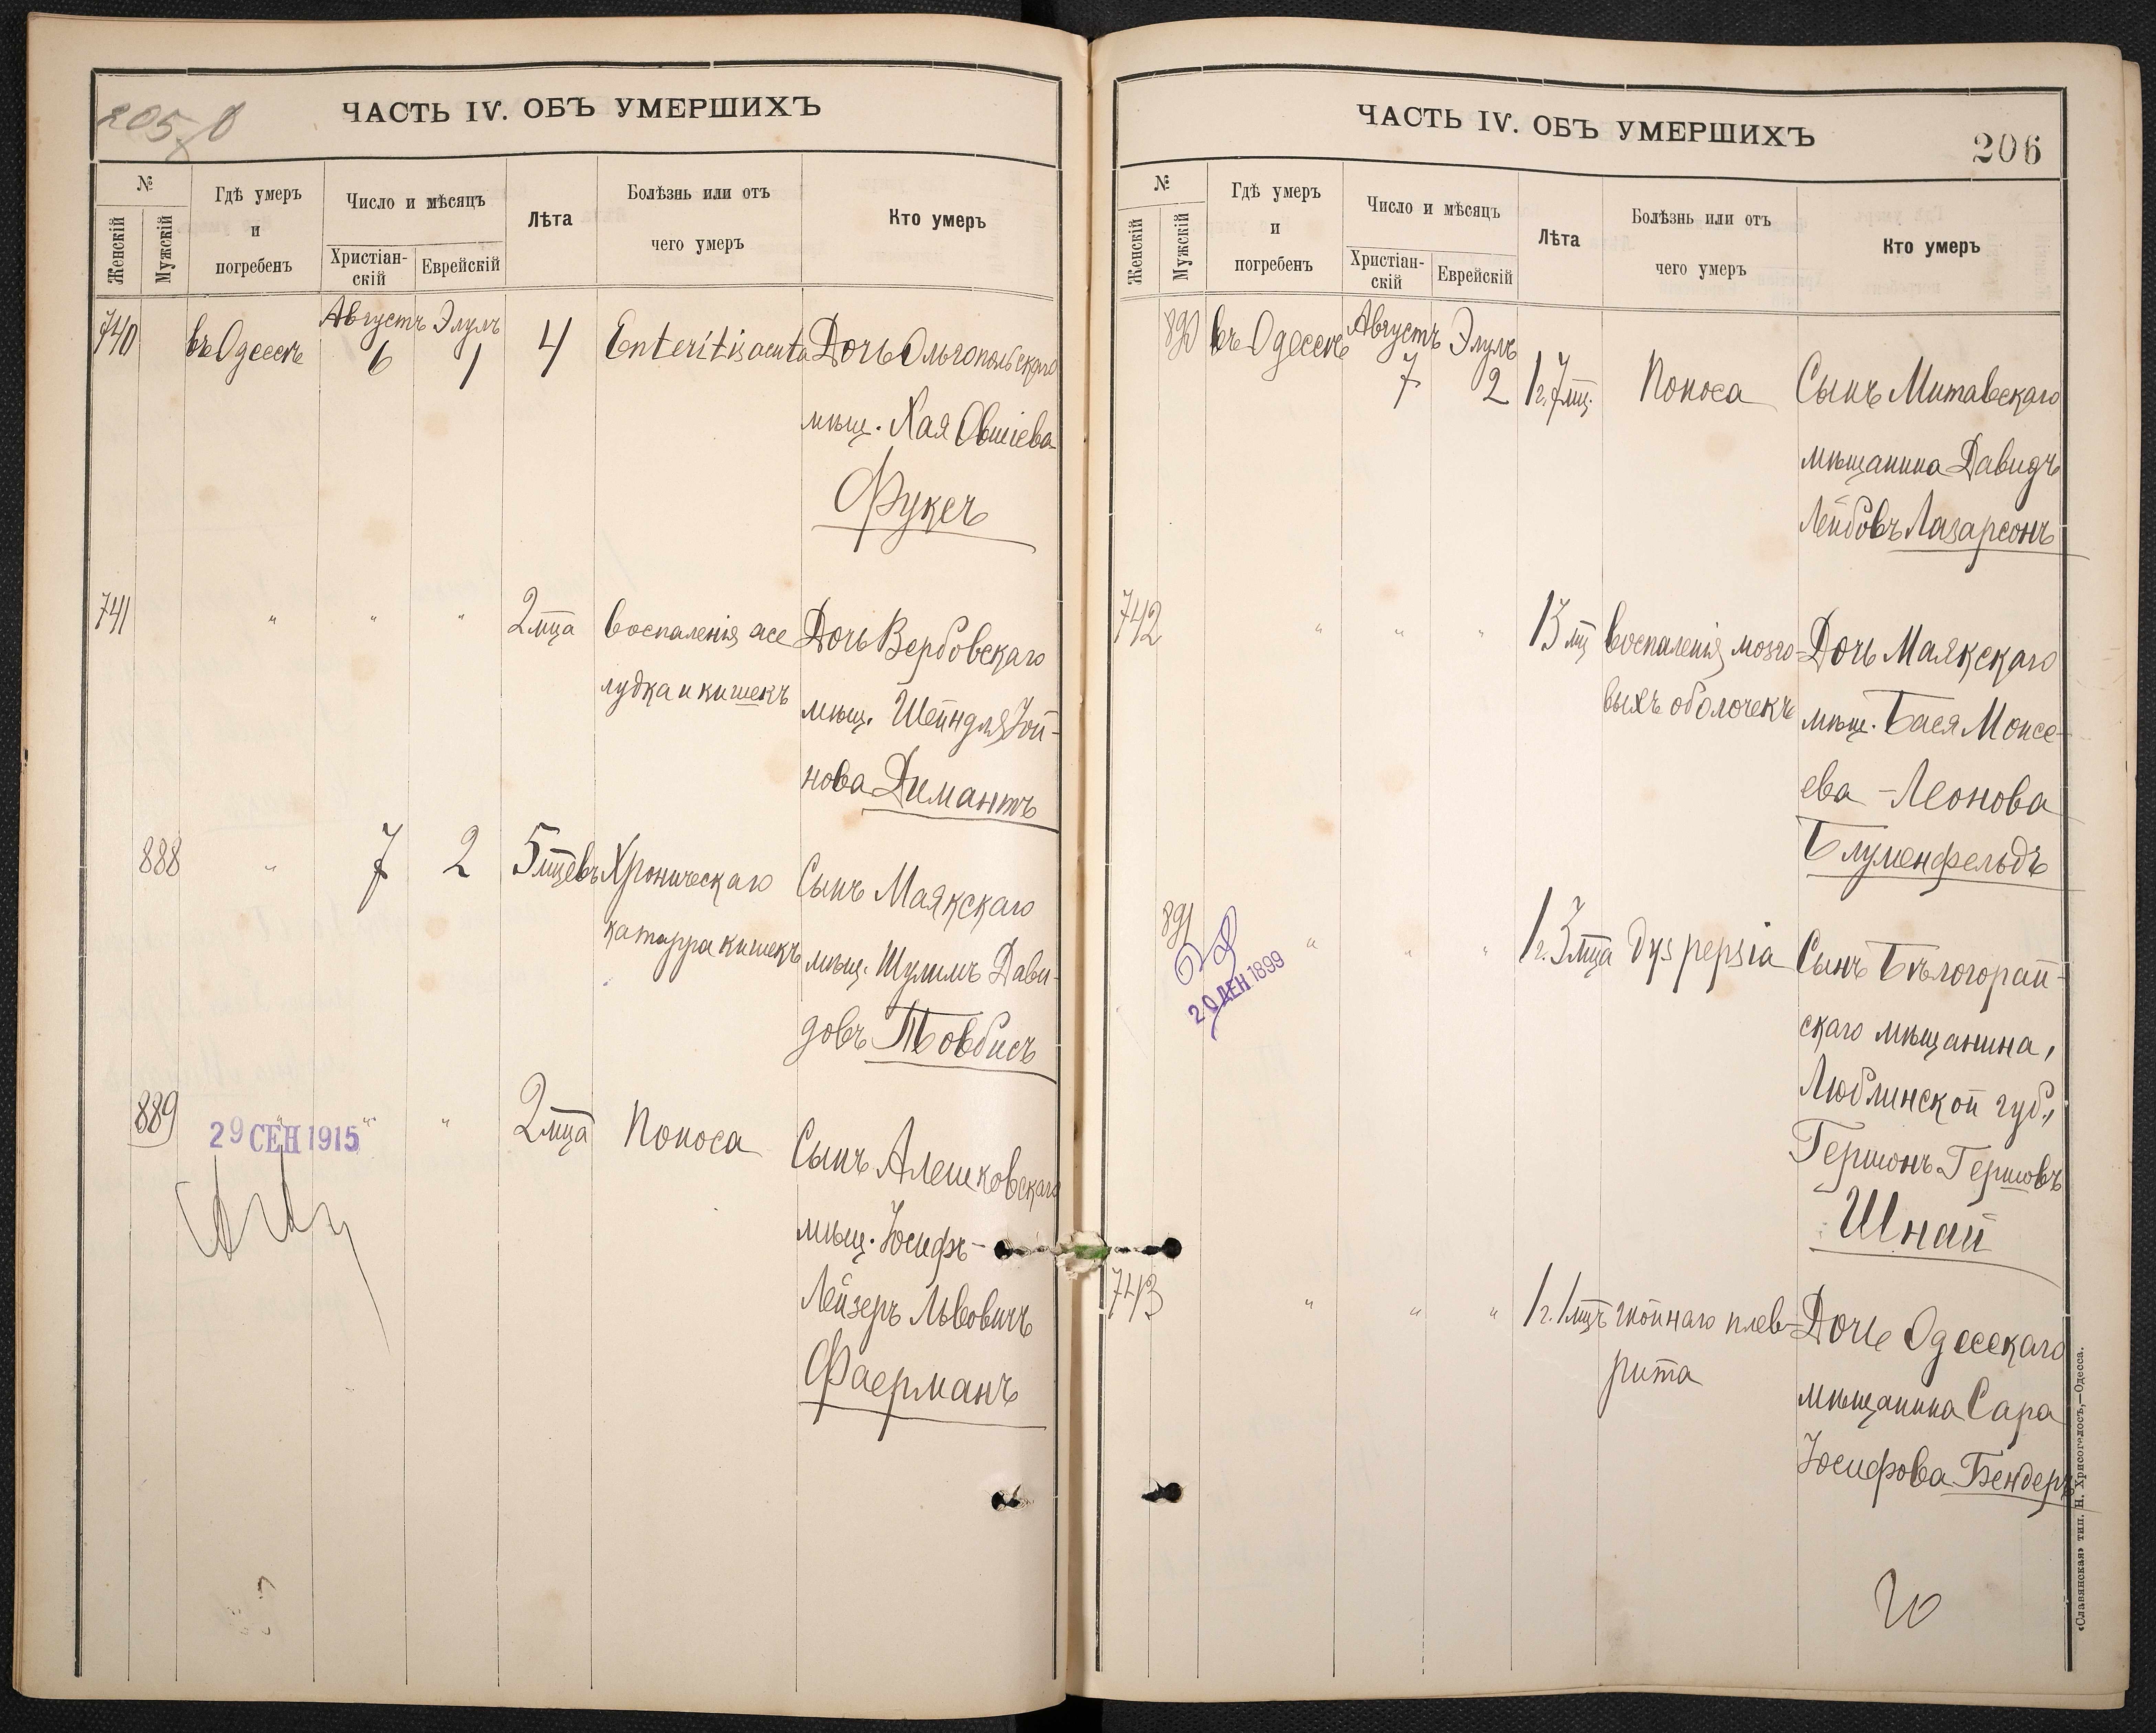 205 об
ЧАСТЬ IV. ОБЪ УМЕРШИХЪ
№
Женскій
Мужскій
Гдѣ умеръ
и
погребенъ
Число и мѣсяцъ
Христіан-
скій
Еврейскій
Лѣта
Болѣзнь или отъ
чего умеръ
Кто умеръ
740 въ Одессѣ Августъ 6 Элулъ 1 4 Enteritis acuta Дочь Ольгопольскаго
мѣщ. Хая Овшіева
Фуксъ
741 " " " 2 мца Воспаленія же Дочь Вербовскаго
лудка и кишекъ мѣщ. Шейндля Іой-
нова Димантъ
888 " 7 2 5 мцевъ Хроническаго Сынъ Маякскаго
катарра кишекъ мѣщ. Шулимъ Дави-
довъ Товбисъ
889 " " " 2 мца Поноса Сынъ Алешковскаго
29 СЕН 1915
мѣщ. Іосифъ-
Лейзеръ Львовичъ
Фаерманъ
ЧАСТЬ IV. ОБЪ УМЕРШИХЪ
206
№
Женскій
Мужскій
Гдѣ умеръ
и
погребенъ
Число и мѣсяцъ
Христіан-
скій
Еврейскій
Лѣта
Болѣзнь или отъ
чего умеръ
Кто умеръ
890 въ Одессѣ Августъ 7 Элулъ 2 1 г. 7 мц. Поноса Сынъ Митавскаго
мѣщанина Давидъ
Лейбовъ Лазарсонъ
742 " " " 13 мц Воспаленія мозго- Дочь Маякскаго
выхъ оболочекъ мѣщ. Бася Моисе-
ева-Леонова
Блуменфельдъ
891 " " " 1 г. 3 мца Dyspepsia Сынъ Бѣлогорай-
20 ДЕН 1899
скаго мѣщанина,
Люблинской губ.,
Гершонъ Гершовъ
Шнай
743 " " " 1 г. 1 мцъ гнойнаго плев- Дочь Одесскаго
рита мѣщанина Сара
Іосифова Бендеръ
«Славянская» тип. Н. Хрисогелосъ,—Одесса.